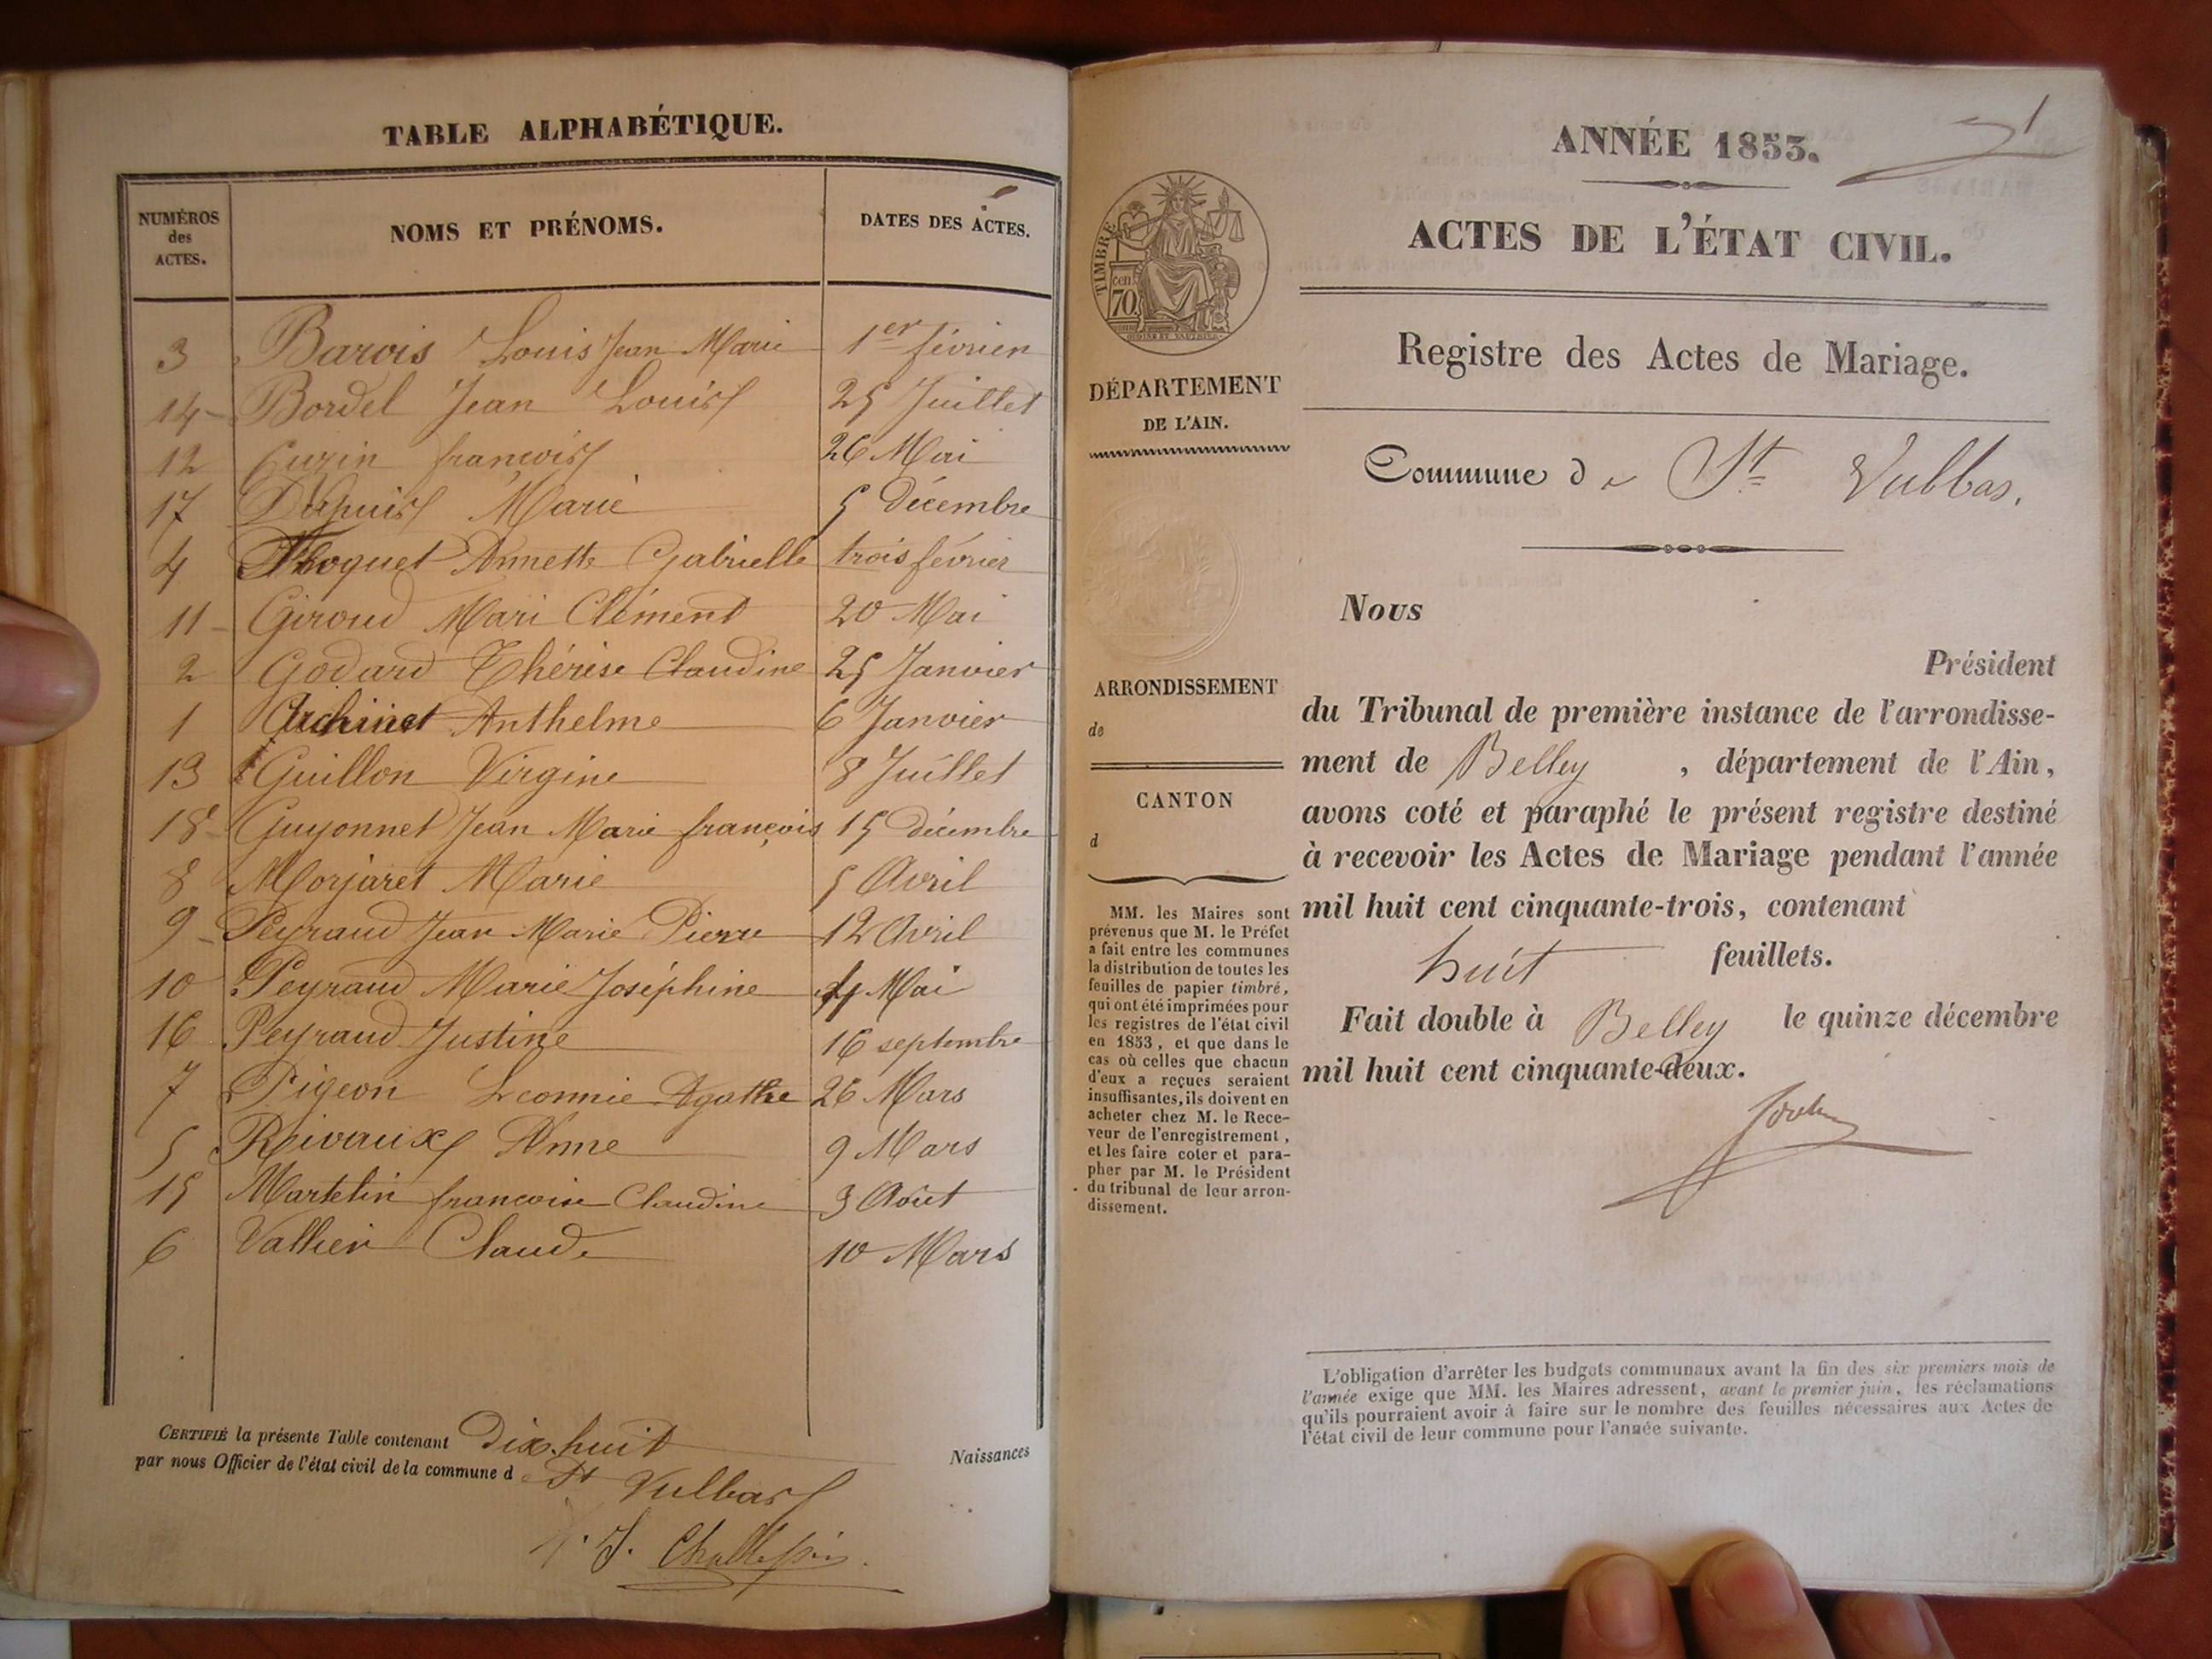 TABLE ALPHABÉTIQUE.
NUMÉROS des ACTES. NOMS ET PRÉNOMS. DATES DES ACTES.
3 Barois Louis Jean Marie 1er février
14 Bordel Jean Louis 25 Juillet
12 Cuzin françois 26 Mai
17 Dupuis Marie 5 Décembre
4 Floquet Annette Gabrielle trois février
11 Giroud Mari Clément 20 Mai
2 Godard Thérèse Claudine 25 Janvier
1 Anthelme 6 Janvier
13 Guillon Virgine 8 Juillet
18 Guyonnet Jean Marie françois 15 décembre
8 Morjaret Marie 5 Avril
9 Peyraud Jean Marie Pierre 12 Avril
10 Peyraud Marie Joséphine Mai
16 Peyraud Justine 16 septembre
7 Pigeon Leonnie Agathe 26 Mars
5 Reivaux Anne 9 Mars
15 Martelin francoise Claudine 3 Août
6 Vallier Claude 10 Mars
CERTIFIÉ la présente Table contenant Dix huit Naissances
par nous Officier de l'état civil de la commune de St Vulbas
ANNÉE 1853.
1
ACTES DE L'ÉTAT CIVIL.
Registre des Actes de Mariage.
Commune de St Vulbas.
TIMBRE
cen.
70
DÉPARTEMENT
DE L'AIN.
ARRONDISSEMENT
de
CANTON
d
MM. les Maires sont
prévenus que M. le Préfet
a fait entre les communes
la distribution de toutes les
feuilles de papier timbré,
qui ont été imprimées pour
les registres de l'état civil
en 1853, et que dans le
cas où celles que chacun
d'eux a reçues seraient
insuffisantes, ils doivent en
acheter chez M. le Rece-
veur de l'enregistrement,
et les faire coter et para-
pher par M. le Président
du tribunal de leur arron-
dissement.
Nous
Président
du Tribunal de première instance de l'arrondisse-
ment de Belley, département de l'Ain,
avons coté et paraphé le présent registre destiné
à recevoir les Actes de Mariage pendant l'année
mil huit cent cinquante-trois, contenant
huit feuillets.
Fait double à Belley le quinze décembre
mil huit cent cinquante-deux.
L'obligation d'arrêter les budgets communaux avant la fin des six premiers mois de
l'année exige que MM. les Maires adressent, avant le premier juin, les réclamations
qu'ils pourraient avoir à faire sur le nombre des feuilles nécessaires aux Actes de
l'état civil de leur commune pour l'année suivante.